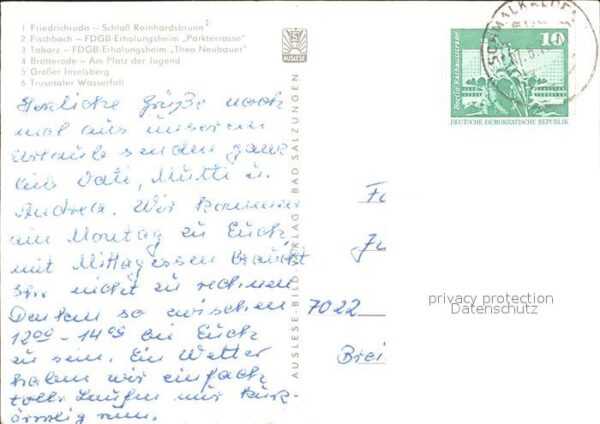 1 Friedrichroda – Schloß Reinhardsbrunn
2 Fischbach – FDGB-Erholungsheim „Parkterrasse"
3 Tabarz – FDGB-Erholungsheim „Theo Neubauer"
4 Brotterode – Am Platz der Jugend
5 Großer Inselsberg
6 Trusetaler Wasserfall
AUSLESE
SCHMALKALDEN
10
Berlin, Rathausstrasse
DEUTSCHE DEMOKRATISCHE REPUBLIK
Herzliche Grüße noch
mal aus unserem
Urlaub senden ganz
lieb Vati, Mutti u.
Andrea. Wir kommen
am Montag zu Euch
mit Mittagessen braucht
Ihr nicht zu rechnen
Denken so zwischen
12⁰⁰ - 14⁰⁰ bei Euch
zu sein. Ein Wetter
haben wir einfach
toll. Laufen nur kurz-
ärmlig rum.
AUSLESE-BILD-VERLAG BAD SALZUNGEN
7022
privacy protection
Datenschutz